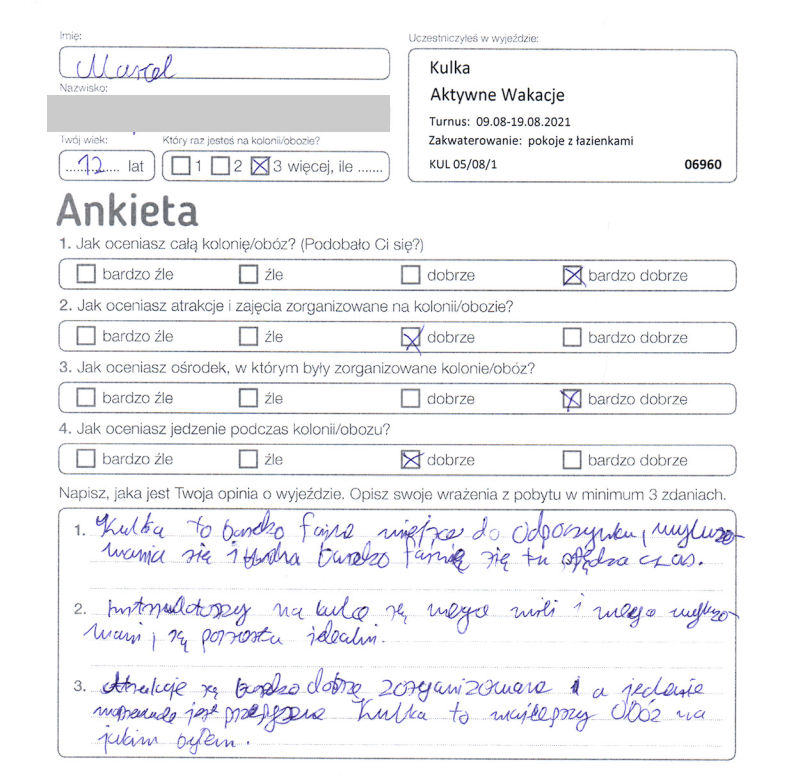 Imię:
Marcel
Uczestniczyłeś w wyjeździe:
Kulka
Aktywne Wakacje
Turnus: 09.08-19.08.2021
Zakwaterowanie: pokoje z łazienkami
KUL 05/08/1 06960
Nazwisko:
Twój wiek: Który raz jesteś na kolonii/obozie?
12 lat 1 2 3 więcej, ile .......
Ankieta
1. Jak oceniasz całą kolonię/obóz? (Podobało Ci się?)
bardzo źle źle dobrze bardzo dobrze
2. Jak oceniasz atrakcje i zajęcia zorganizowane na kolonii/obozie?
bardzo źle źle dobrze bardzo dobrze
3. Jak oceniasz ośrodek, w którym były zorganizowane kolonie/obóz?
bardzo źle źle dobrze bardzo dobrze
4. Jak oceniasz jedzenie podczas kolonii/obozu?
bardzo źle źle dobrze bardzo dobrze
Napisz, jaka jest Twoja opinia o wyjeździe. Opisz swoje wrażenia z pobytu w minimum 3 zdaniach.
1. Kulka to bardzo fajne miejsce do odpoczynku, wyluzo-
wania się i bardzo fajnie się tu spędza czas.
2. Instruktorzy na kulce są mega mili i mega wyluzo-
wani, są poprostu idealni.
3. Atrakcje są bardzo dobrze zorganizowane a jedzenie
naprawde jest przepyszne Kulka to najlepszy Obóz na
jakim byłem.